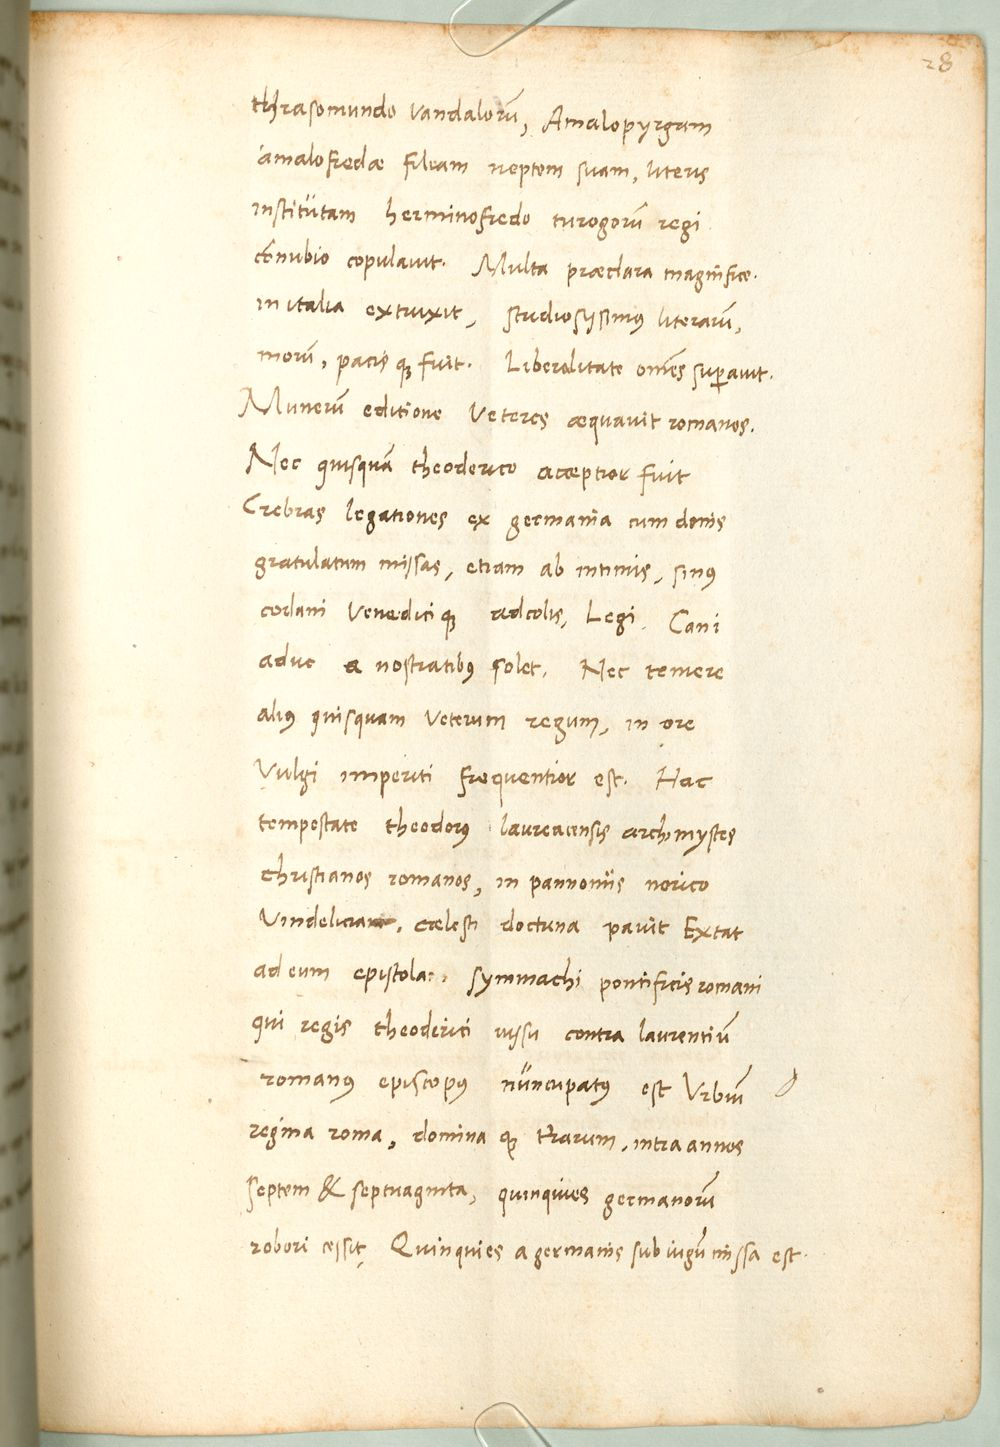 28
thrasomundo Vandalorū, Amalopyrgam
amalofredæ filiam neptem suam, literis
institutam herminofredo turogorū regi
cōnubio copulavit. Multa præclara magnifice.
in italia extruxit, studiosissimus literarū,
morū, pacis q3 fuit. Liberalitate om̄es superavit.
Munerū editione Veteres æquavit romanos.
Nec quisquā theoderico acceptior fuit
Crebras legationes ex germania cum donis
gratulatum missas, etiam ab intimis, sinus
codani Venedici q3 adcolis, Legi. Cani
aduc a nostratibus solet. Nec temere
alius quisquam Veterum regum, in ore
Vulgi imperiti frequentior est. Hac
tempestate theodorus laureacensis archimystes
christianos romanos, in pannoniis norico
, cælesti doctrina pavit Extat
ad eum epistola. symmachi pontificis romani
qui regis theoderici iussu contra laurentiū
romanus episcopus nuncupatus est Urbiū
regina roma, domina q3 trarum, intra annos
septem & septuaginta, quinquies germanorū
robori cessit, Quinquies a germanis sub iugū missa est.